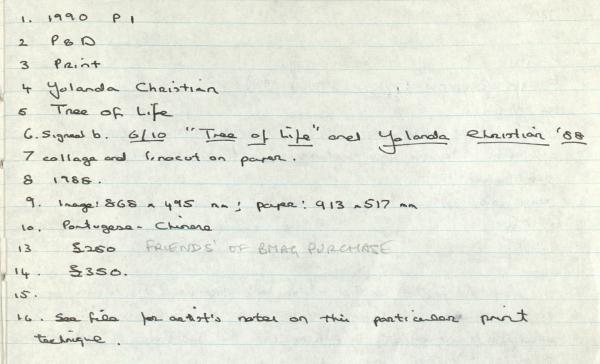 1. 1990 P 1
2 P & D
3 Print
4 Yolanda Christian
5 Tree of Life
6. Signed b. 6/10 "Tree of Life" and Yolanda Christian '88
7 collage and linocut on paper.
8 1988.
9. Image: 868 x 495 mm; paper: 913 x 517 mm
10. Portugese - Chinese
13 £250 FRIENDS OF BMAG PURCHASE
14. £350.
15.
16. See file for artist's notes on this particular print
technique.